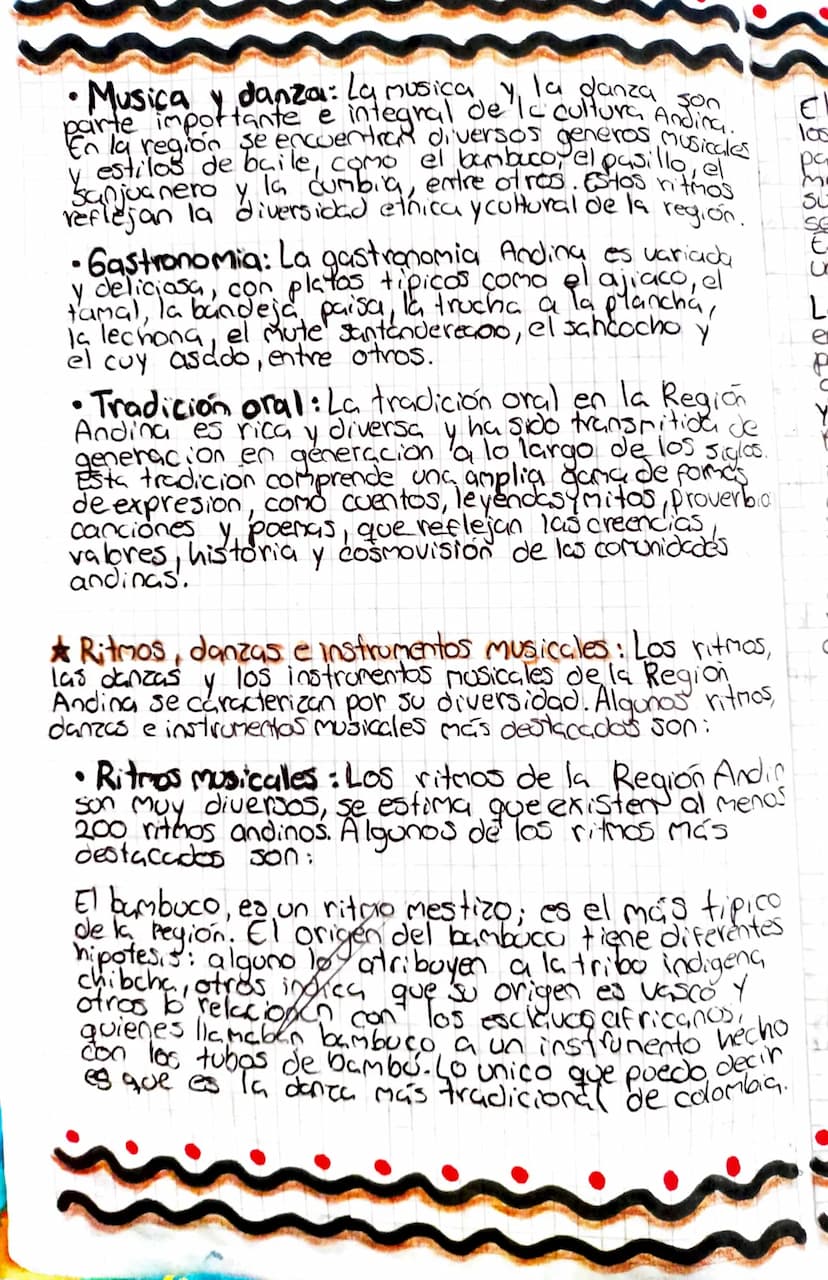 • Musica y danza: La musica y la danza son
parte importante e integral de la cultura Andina.
En la región se encuentran diversos generos musicales
y estilos de baile, como el bambuco, el pasillo, el
sanjuanero y la cumbia, entre otros. Estos ritmos
reflejan la diversidad etnica y cultural de la región.
• Gastronomia: La gastronomia Andina es variada
y deliciosa, con platos típicos como el ajiaco, el
tamal, la bandeja paisa, la trucha a la plancha,
la lechona, el mute santandereano, el sancocho y
el cuy asado, entre otros.
• Tradición oral: La tradición oral en la Región
Andina es rica y diversa y ha sido transmitida de
generacion en generacion a lo largo de los siglos.
Esta tradicion comprende una amplia gama de formas
de expresion, como cuentos, leyendas y mitos, proverbio
canciones y poemas, que reflejan las creencias,
valores, historia y cosmovisión de las comunidades
andinas.
★ Ritmos, danzas e instrumentos musicales: Los ritmos,
las danzas y los instrumentos musicales de la Región
Andina se caracterizan por su diversidad. Algunos ritmos,
danzas e instrumentos musicales más destacados son:
• Ritmos musicales: Los ritmos de la Región Andin
son muy diversos, se estima que existen al menos
200 ritmos andinos. Algunos de los ritmos más
destacados son:
El bambuco, es un ritmo mestizo; es el más típico
de la región. El origen del bambuco tiene diferentes
hipotesis: alguno lo atribuyen a la tribo indigena
chibcha, otros indica que su origen es vasco y
otros lo relacionan con los esclavos africanos,
quienes llamaban bambuco a un instrumento hecho
con los tubos de bambú. Lo unico que puedo decir
es que es la danza más tradicional de colombia.